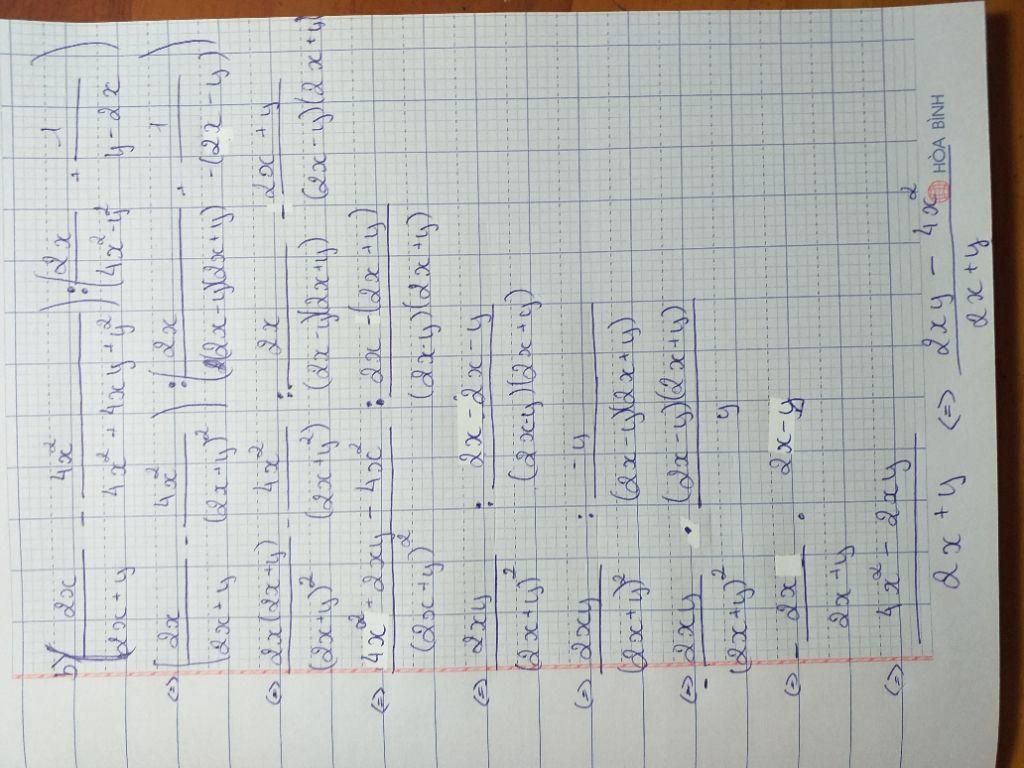 b) ( 2x / 2x + y - 4x² / 4x² + 4xy + y² ) : ( 2x / 4x² - y² + 1 / y - 2x )
(=) ( 2x / 2x + y - 4x² / (2x + y)² ) : ( 2x / (2x - y)(2x + y) + 1 / -(2x - y) )
(=) 2x(2x + y) / (2x + y)² - 4x² / (2x + y²) : 2x / (2x - y)(2x + y) - 2x + y / (2x - y)(2x + y)
(=) 4x² + 2xy - 4x² / (2x + y)² : 2x - (2x + y) / (2x - y)(2x + y)
(=) 2xy / (2x + y)² : 2x - 2x - y / (2x - y)(2x + y)
(=) 2xy / (2x + y)² : -y / (2x - y)(2x + y)
(=) - 2xy / (2x + y)² . (2x - y)(2x + y) / y
(=) - 2x / 2x + y . 2x - y
(=) 4x² - 2xy / 2x + y (=) 2xy - 4x² / 2x + y
HÒA BÌNH